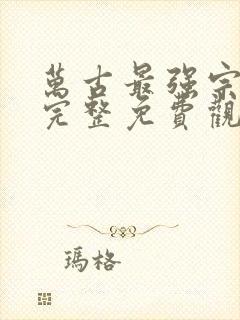 萬古最强宗
完整免費觀
瑪格